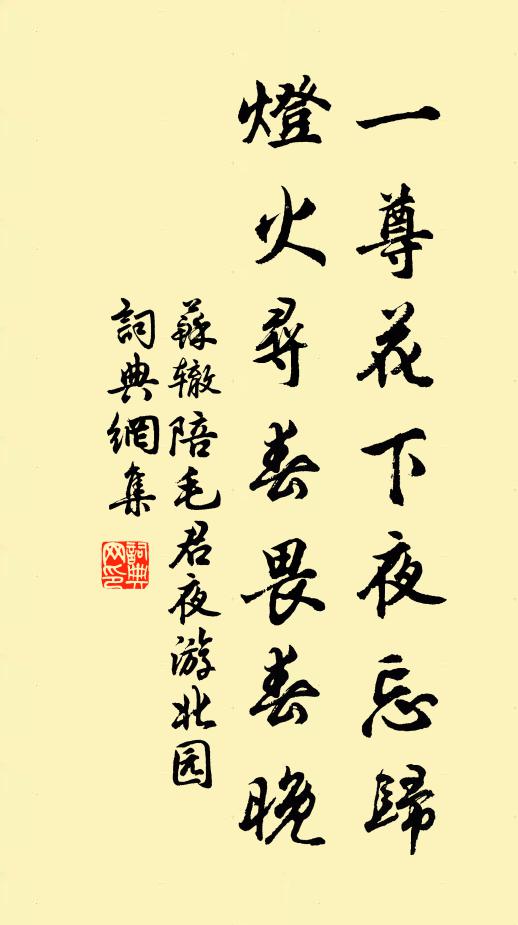 一尊花下夜忘歸
燈火尋春畏春晚
蘇辙陪毛君夜游北园
詞典網集
詞典
网印